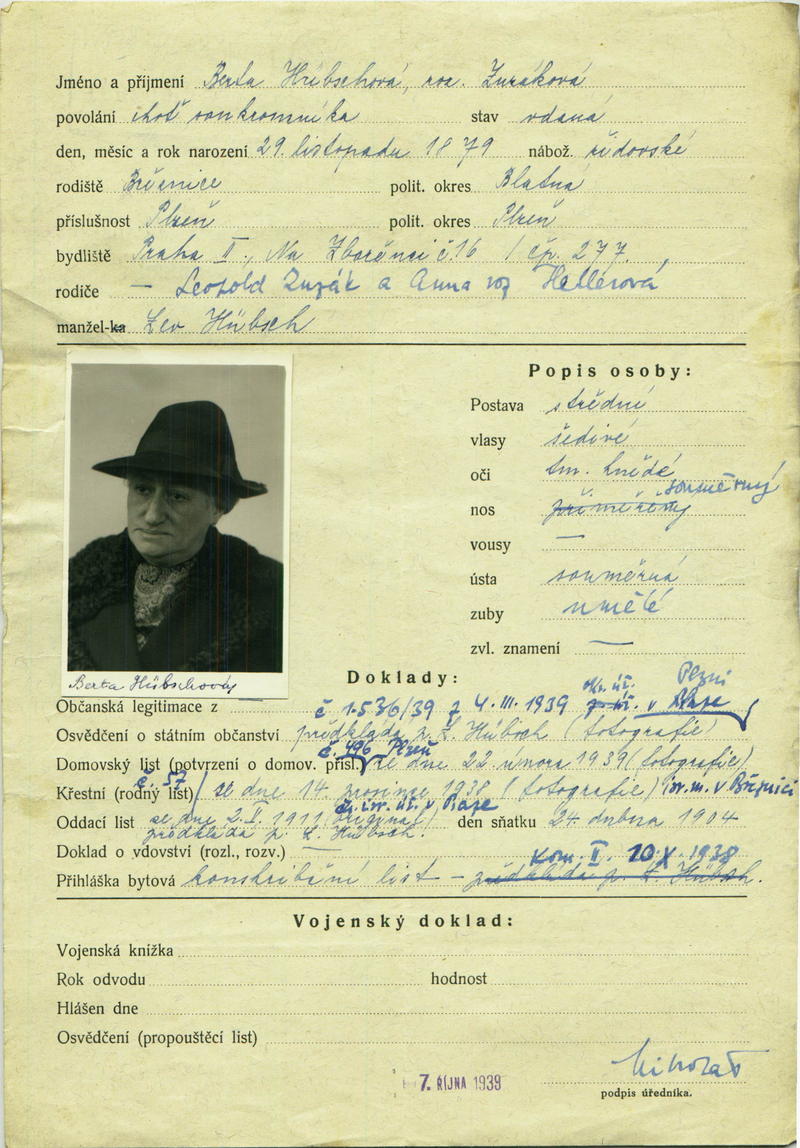 Jméno a příjmení Berta Hübschová, roz. Zuzáková
povolání choť soukromníka stav vdaná
den, měsíc a rok narození 29. listopadu 1879 nábož. židovské
rodiště Březnice polit. okres Blatná
příslušnost Plzeň polit. okres Plzeň
bydliště Praha II., Na Zbořenci č. 16 / čp. 277,
rodiče — Leopold Zuzák a Anna roz Hellerová
manžel-ka Leo Hübsch
Popis osoby:
Postava střední
vlasy šedivé
oči tm. hnědé
nos přiměřený souměrný
vousy —
ústa souměrná
zuby umělé
zvl. znamení —
Berta Hübschová
Doklady:
Občanská legitimace z —
č 1.536/39 z 4. III. 1939 v Plzni
Osvědčení o státním občanství předkládá p. L. Hübsch (fotografie)
Domovský list (potvrzení o domov. přísl.) č. 496 Plzeň ze dne 22 února 1939 (fotografie)
Křestní (rodný list) č 57 ze dne 14. prosince 1938 (fotografie) v Březnici
Oddací list ze dne 2. V. 1911 (originál) den sňatku 24. dubna 1904
předkládá p. L. Hübsch.
Doklad o vdovství (rozl., rozv.) —
Kom. II. 10 X. 1938
Přihláška bytová konskribční list – předkládá p. L. Hübsch.
Vojenský doklad:
Vojenská knížka
Rok odvodu hodnost
Hlášen dne
Osvědčení (propouštěcí list)
7. ŘÍJNA 1939
podpis úředníka.